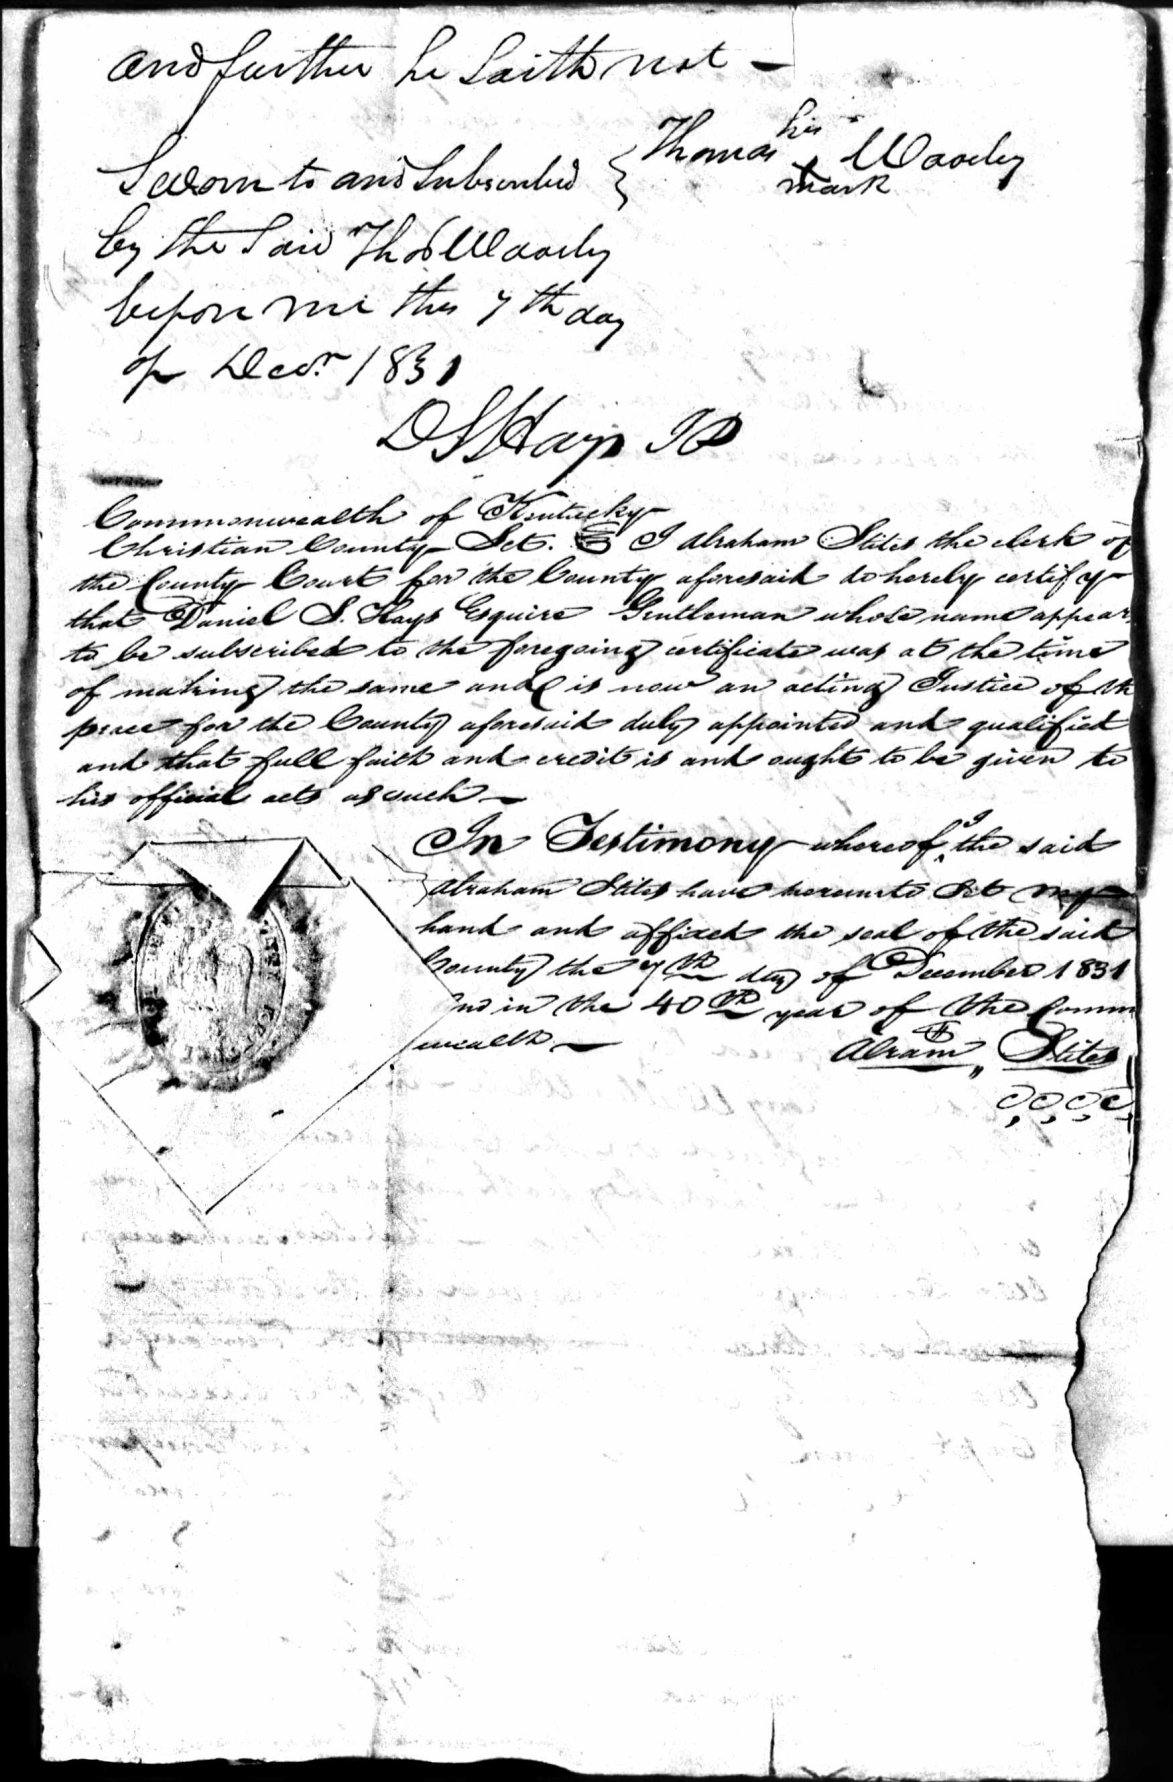 and further he Saith not —
his
Thomas X Woosley
mark
Sworn to and Subscribed
by the Said Thos Woosley
before me this 7th day
of Decr. 1831
D S Hays JP
Commonwealth of Kentucky
Christian County Sct. I Abraham Stites the clerk of
the County Court for the County aforesaid do hereby certify
that Daniel S. Hays Esquire Gentleman whose name appear
to be subscribed to the foregoing certificate was at the time
of making the same and is now an acting Justice of th
peace for the County aforesaid duly appointed and qualified
and that full faith and credit is and ought to be given to
his official acts as such —
In Testimony whereof I the said
Abraham Stites have hereunto Set my
hand and affixed the seal of the said
County the 7th day of December 1831
and in the 40th year of the Comm
wealth —
Abram Stites